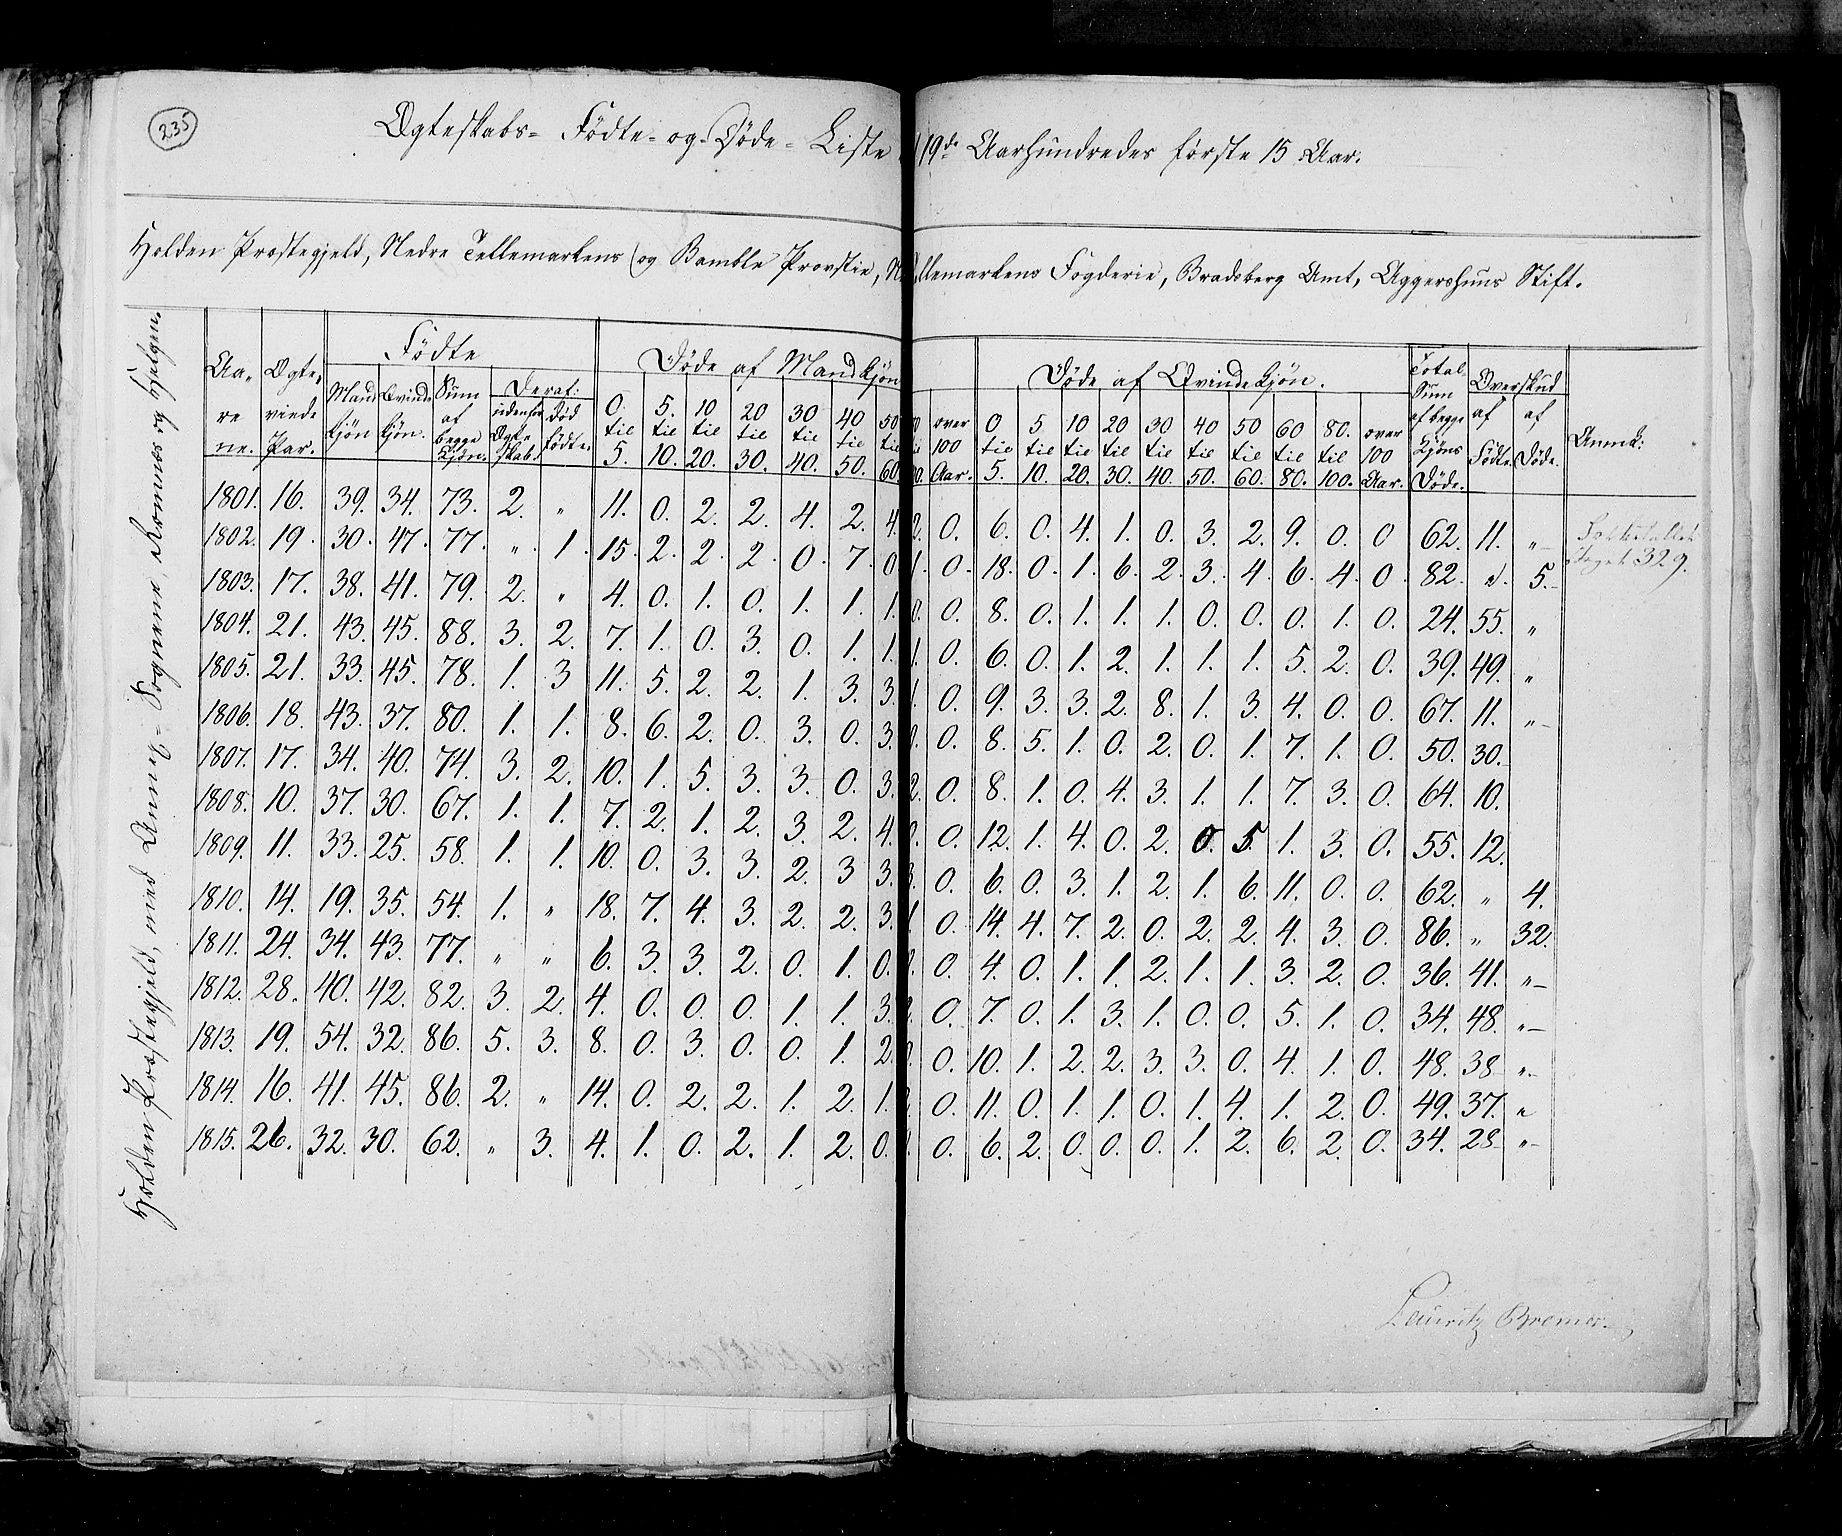 235
Ægteskabs- Födte- og Döde- Liste 19de Aarhundredes förste 15 Aar.
Holden Præstegjeld, Nedre Tellemarkens og Bamble Provstie, N llemarkens Fogderie, Bradsberg Amt, Aggershuus Stift.
Holden Præstegjeld, med Annex-Sognene, Romnæs og Helgen.
Födte Döde af Mandkjön Döde af Qvindekjön. Total Sum af begge Kjöns Döde. Overskud Anmk:
Aarene. Ægteviede Par. Mandkjön Qvindekjön. Sum af begge Kjön. Deraf: udenfor Ægteskab. Dödfödte. 0 til 5. 5. til 10. 10 til 20. 20 til 30. 30 til 40. 40 til 50. 50 til 60 over 100 Aar. 0 til 5. 5. til 10. 10 til 20. 20 til 30. 30 til 40. 40 til 50. 50 til 60. 60 til 80. 80. til 100. over 100 Aar. af Födte. af Döde.
1801. 16. 39. 34. 73. 2. " 11. 0. 2. 2. 4. 2. 4. 2. 0. 6. 0. 4. 1. 0. 3. 2. 9. 0. 0 62. 11. "
1802. 19. 30. 47. 77. " 1. 15. 2. 2. 2. 0. 7. 0. 1. 0. 18. 0. 1. 6. 2. 3. 4. 6. 4. 0. 82. " 5.
1803. 17. 38. 41. 79. 2. " 4. 0. 1. 0. 1. 1. 1. 0. 0. 8. 0. 1. 1. 1. 0. 0. 0. 1. 0. 24. 55. "
1804. 21. 43. 45. 88. 3. 2. 7. 1. 0. 3. 0. 1. 1. 1. 0. 6. 0. 1. 2. 1. 1. 1. 5. 2. 0. 39. 49. "
1805. 21. 33. 45. 78. 1. 3 11. 5. 2. 2. 1. 3. 3. 1. 0. 9. 3. 3. 2. 8. 1. 3. 4. 0. 0. 67. 11. "
1806. 18. 43. 37. 80. 1. 1. 8. 6. 2. 0. 3. 0. 3. 0. 0. 8. 5. 1. 0. 2. 0. 1. 7. 1. 0. 50. 30.
1807. 17. 34. 40. 74. 3. 2. 10. 1. 5. 3. 3. 0. 3. 2. 0. 8. 1. 0. 4. 3. 1. 1. 7. 3. 0. 64. 10.
1808. 10. 37. 30. 67. 1. 1. 7. 2. 1. 2. 3. 2. 4. 0. 0. 12. 1. 4. 0. 2. 0. 5. 1. 3. 0. 55. 12.
1809. 11. 33. 25. 58. 1. 1. 10. 0. 3. 3. 2. 3 3. 3. 0. 6. 0. 3. 1. 2. 1. 6. 11. 0. 0. 62. " 4.
1810. 14. 19. 35. 54. 1. " 18. 7. 4. 3. 2. 2. 3. 1. 0. 14. 4. 7. 2. 0. 2. 2. 4. 3. 0. 86. " 32.
1811. 24. 34. 43. 77. " " 6. 3. 3. 2. 0. 1. 0. 0. 4. 0. 1. 1. 2. 1. 1. 3. 2. 0. 36. 41. "
1812. 28. 40. 42. 82. 3. 2. 4. 0. 0. 0. 1. 1. 3. 0. 7. 0. 1. 3. 1. 0. 0. 5. 1. 0. 34. 48. "
1813. 19. 54. 32. 86. 5. 3. 8. 0. 3. 0. 0. 1. 2. 0. 10. 1. 2. 2. 3. 3. 0. 4. 1. 0. 48. 38 "
1814. 16. 41. 45. 86. 2. " 14. 0. 2. 2. 1. 2. 1. 0. 11. 0. 1. 1. 0. 1. 4. 1. 2. 0. 49. 37. "
1815. 26. 32. 30. 62. " 3. 4. 1. 0. 2. 1. 2. 0. 0. 6. 2. 0. 0. 0. 1. 2. 6. 2. 0. 34. 28 "
Folketallet
329.
Lauritz Bremer.